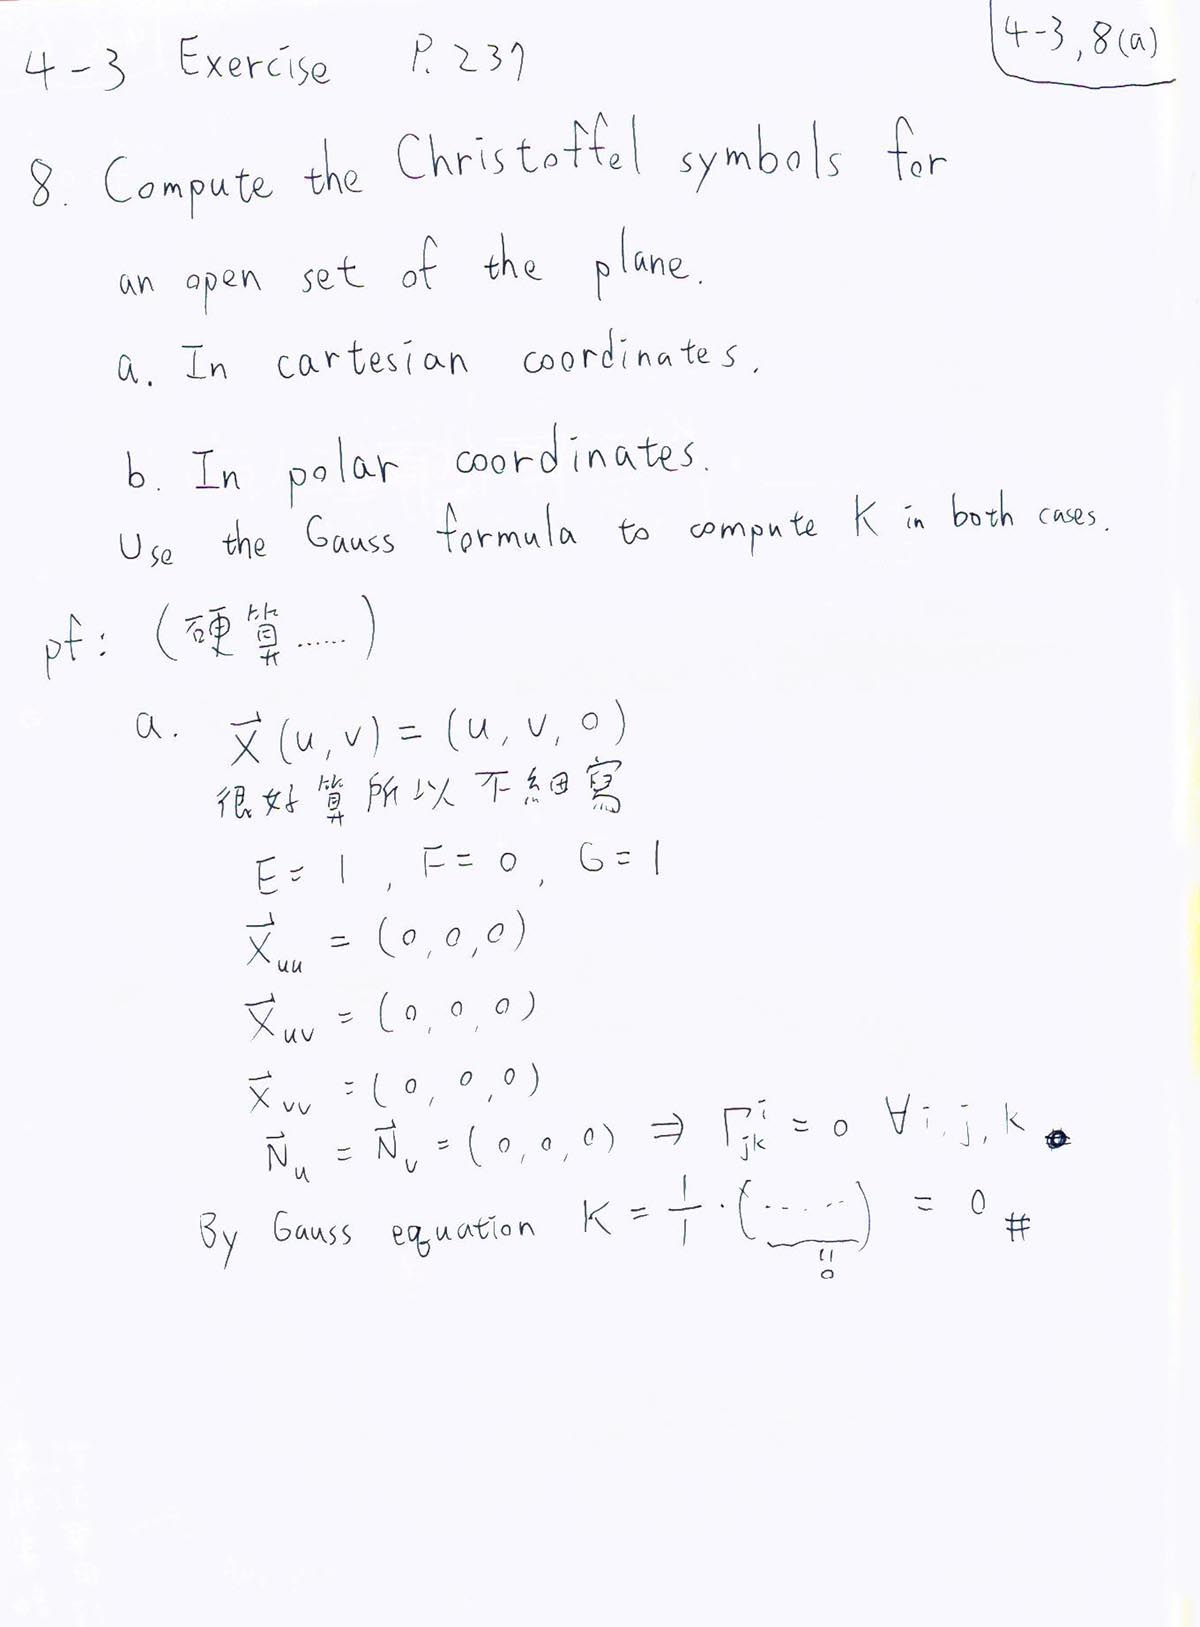 4-3 Exercise P. 237
4-3, 8(a)
8. Compute the Christoffel symbols for
an open set of the plane.
a. In cartesian coordinates.
b. In polar coordinates.
Use the Gauss formula to compute K in both cases.
pf: (硬算......)
a. X⃗(u, v) = (u, v, 0)
很好算所以不細寫
E = 1, F = 0, G = 1
X⃗uu = (0, 0, 0)
X⃗uv = (0, 0, 0)
X⃗vv = (0, 0, 0)
N⃗u = N⃗v = (0, 0, 0) ⇒ Γ^i_jk = 0 ∀ i, j, k
By Gauss equation K = 1/1 · (......) = 0 #
"
0